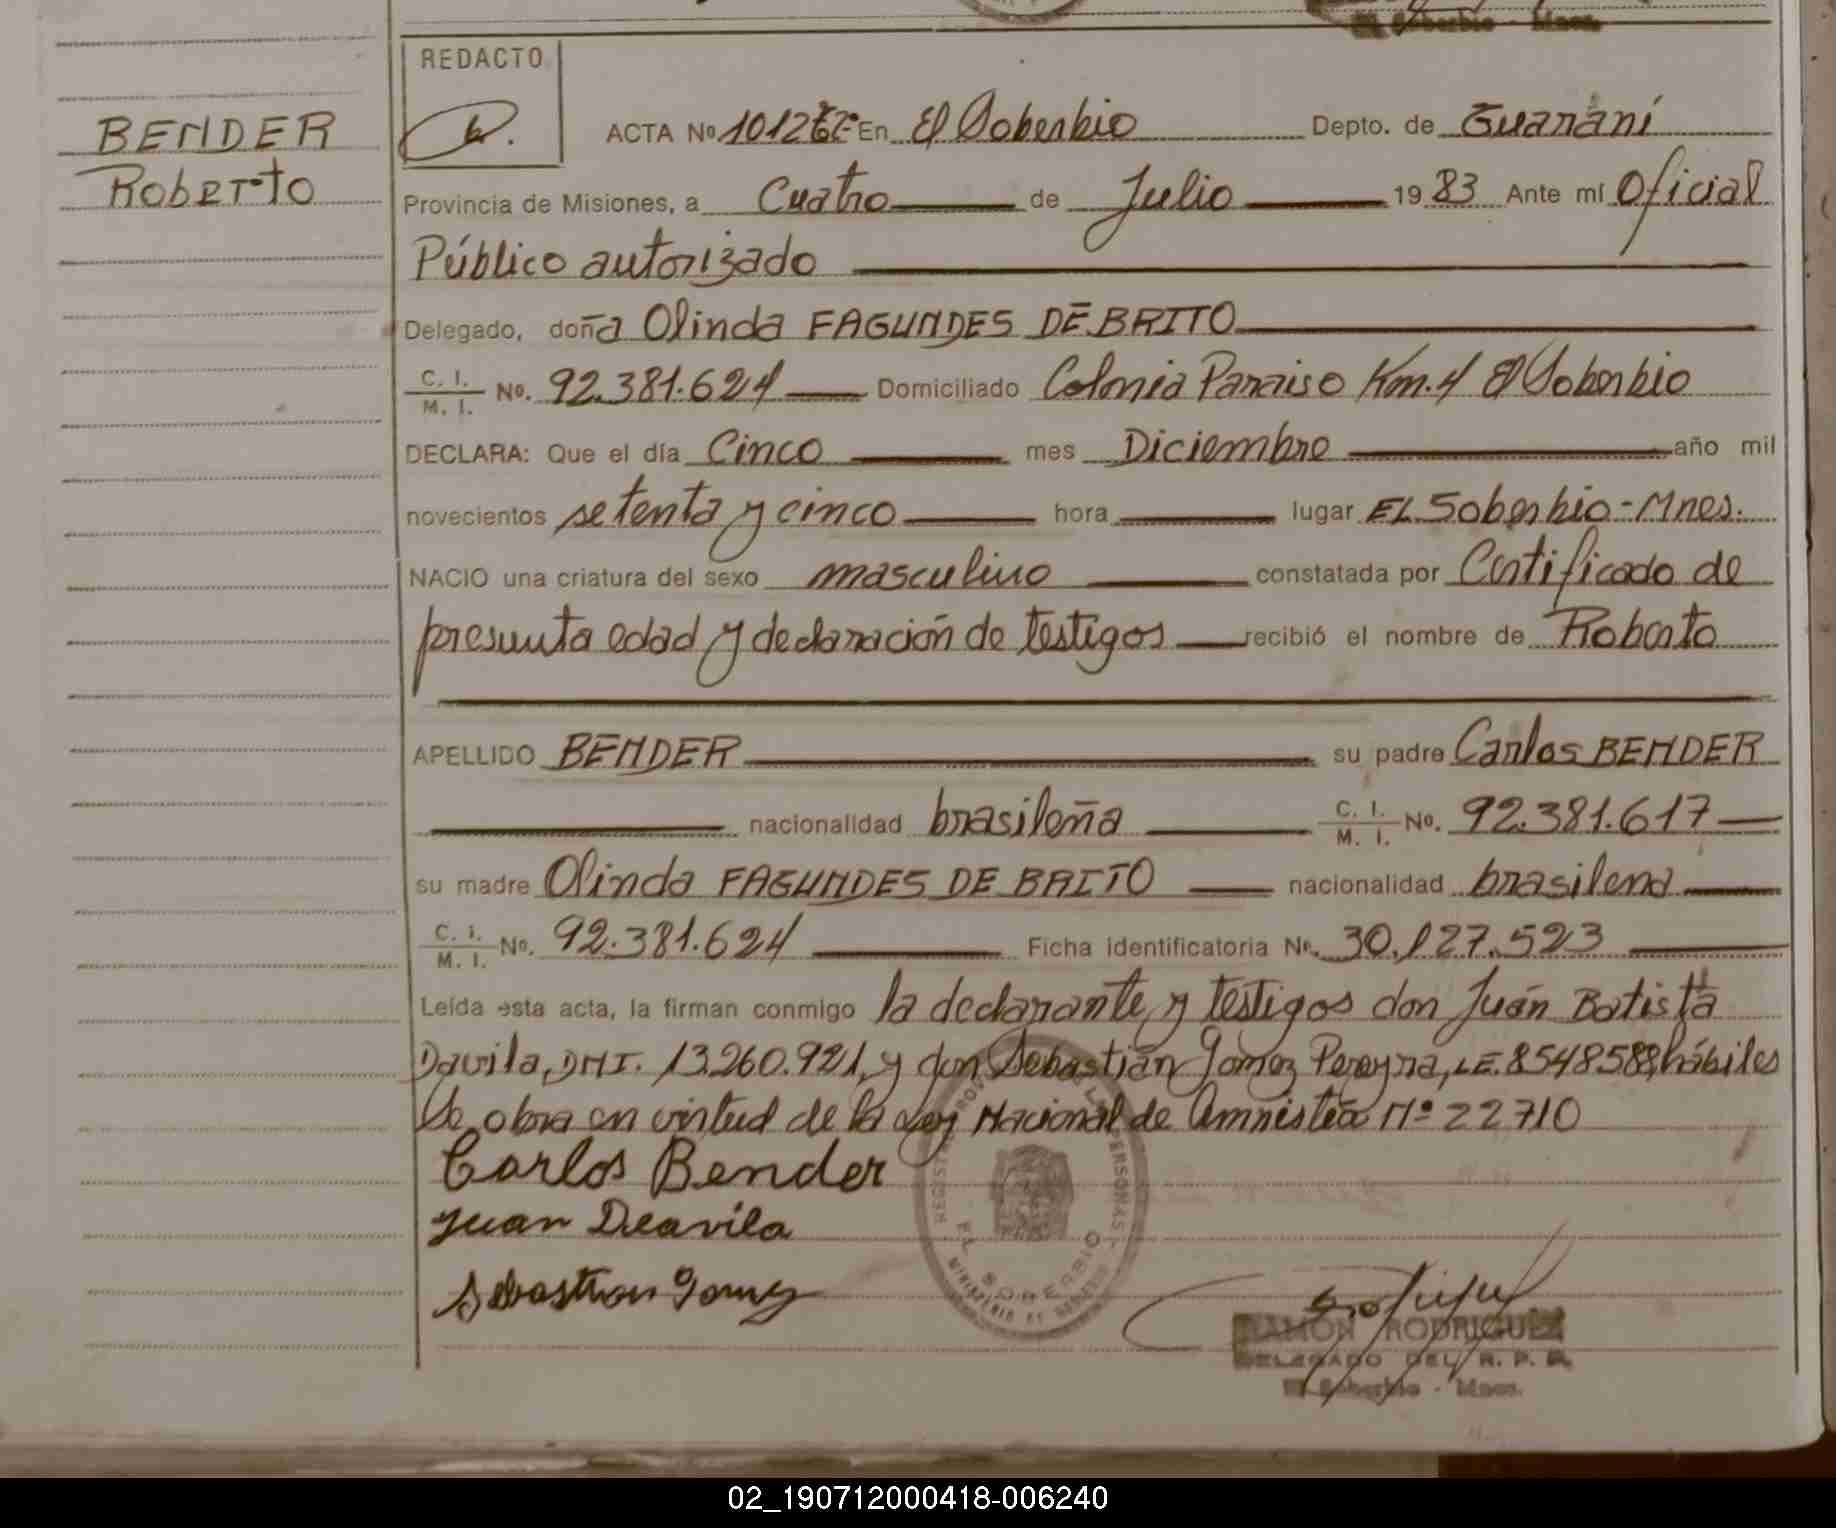 El Soberbio - Mnes.
REDACTO
BENDER
Roberto
ACTA Nº En El Soberbio Depto. de Guaraní
Provincia de Misiones, a Cuatro de Julio 1983 Ante mí Oficial
Público autorizado
Delegado, doña Olinda FAGUNDES DE BRITO
C. I. / M. I. Nº. 92.381.624 Domiciliado Colonia Paraiso Km. 4 El Soberbio
DECLARA: Que el día Cinco mes Diciembre año mil
novecientos setenta y cinco hora lugar EL Soberbio - Mnes.
NACIO una criatura del sexo masculino constatada por Certificado de
presunta edad y declaración de testigos recibió el nombre de Roberto
APELLIDO BENDER su padre Carlos BENDER
nacionalidad brasileña C. I. / M. I. Nº. 92.381.617
su madre Olinda FAGUNDES DE BRITO nacionalidad brasilena
C. I. / M. I. Nº. 92.381.624 Ficha identificatoria Nº. 30.127.523
Leída esta acta, la firman conmigo la declarante y testigos don Juán Batista
Davila, DNI. 13.260.921, y don Sebastián Gomez Pereyra, LE. hábiles
Se obra en virtud de la Ley Nacional de Amnistía Nº 22710
Carlos Bender
Juan Deavila
Sebastian Gomez
REGISTRO PROV. DE LAS PERSONAS
EL SOBERBIO
MINISTERIO DE GOBIERNO
RAMÓN RODRIGUEZ
DELEGADO DEL R. P. P.
El Soberbio - Mnes.
02_190712000418-006240